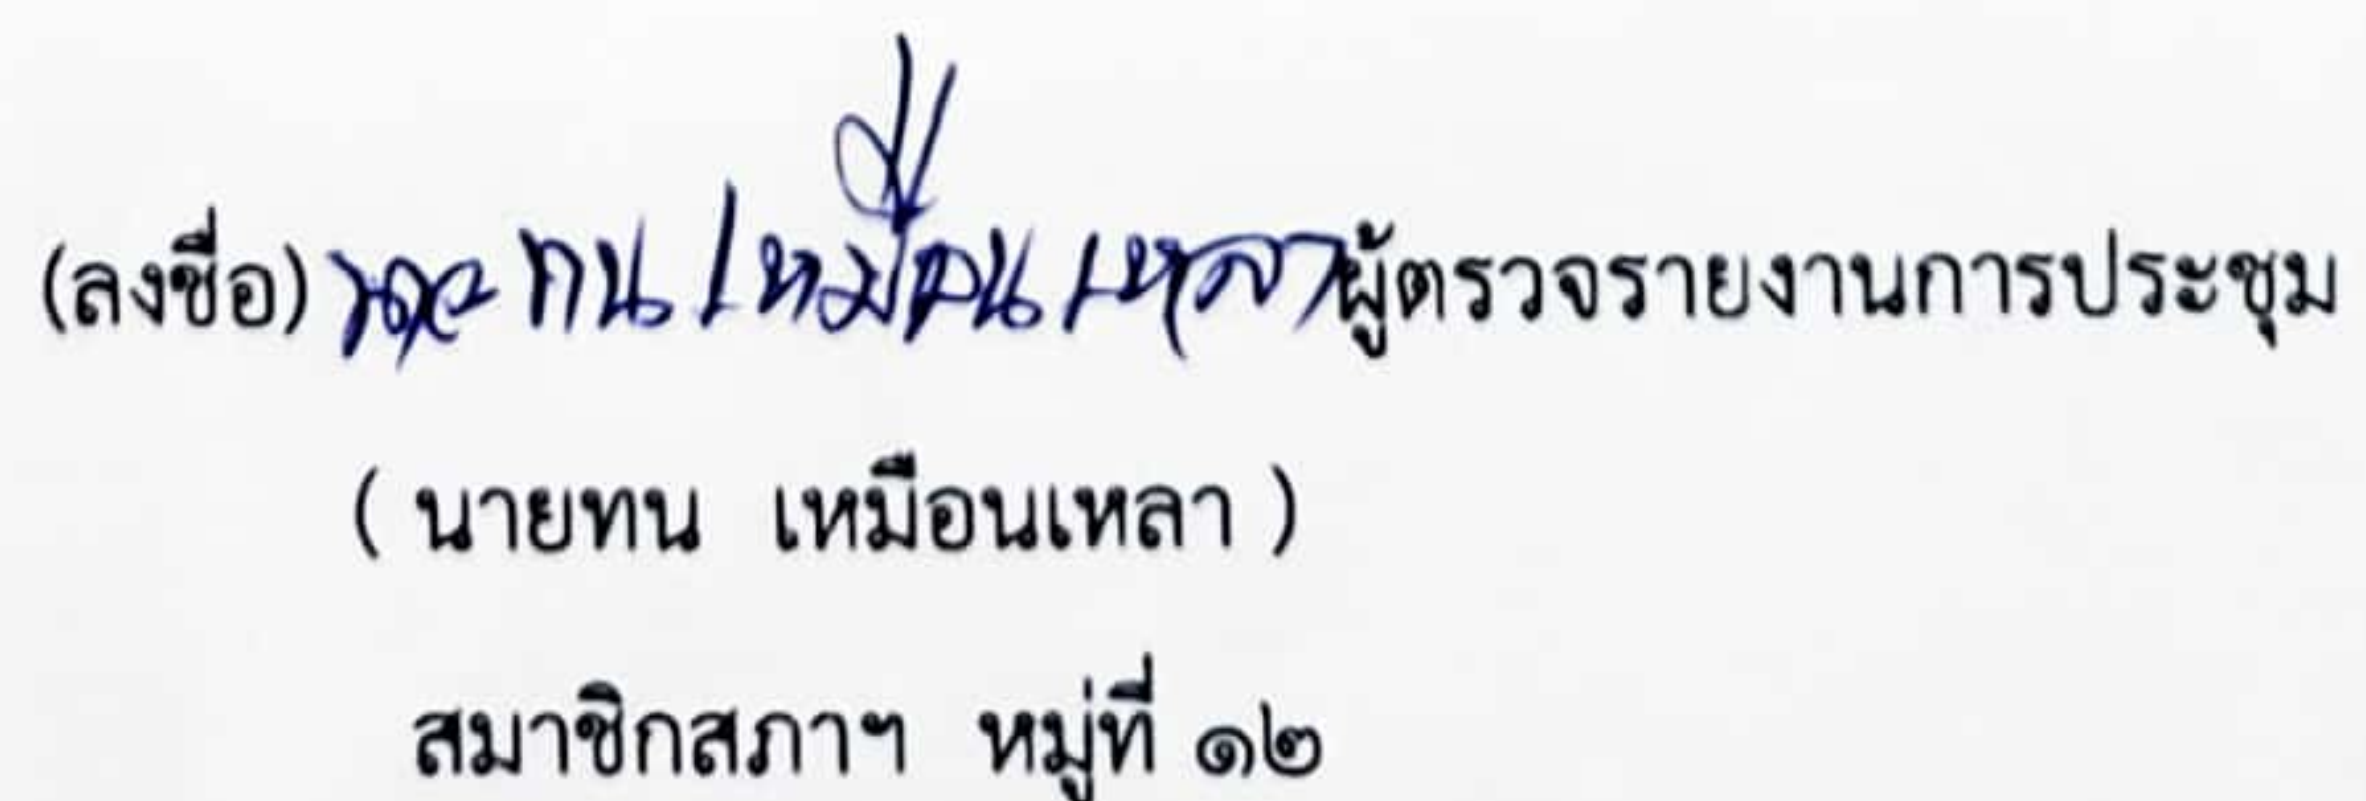 (ลงชื่อ) นาย ทน เหมือนเหลา ผู้ตรวจรายงานการประชุม
( นายทน เหมือนเหลา )
สมาชิกสภาฯ หมู่ที่ ๑๒